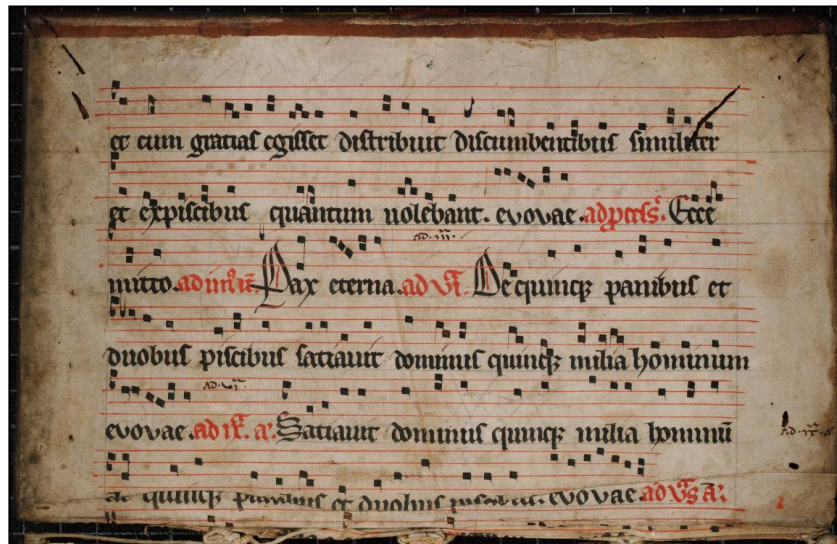 et cum gratias egisset distribuit discumbentibus similiter
et expiscibus quantum uolebant. evovae. Ecce
mitto. Pax eterna. De quinq; panibus et
duobus piscibus satiauit dominus quinq; milia hominum
evovae. Satiauit dominus quinq; milia hominū
de quinq; panibus et duobus piscibus. evovae